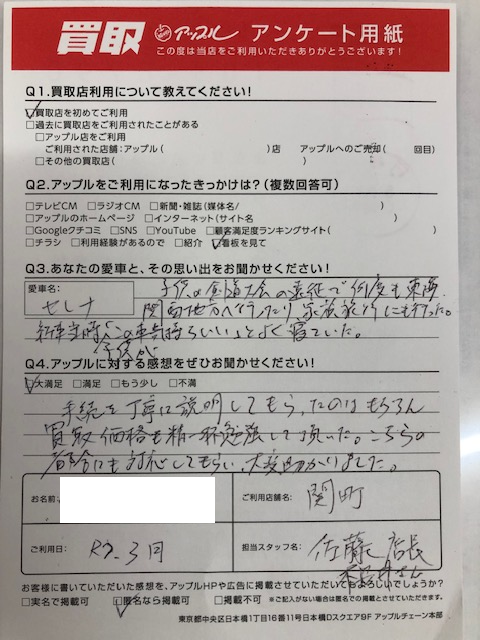 買取 アップル アンケート用紙
この度は当店をご利用いただきありがとうございます!
Q1.買取店利用について教えてください!
☑買取店を初めてご利用
□過去に買取店をご利用されたことがある
□アップル店をご利用
ご利用された店舗:アップル( )店 アップルへのご売却( 回目)
□その他の買取店( )
Q2.アップルをご利用になったきっかけは?(複数回答可)
□テレビCM □ラジオCM □新聞・雑誌(媒体名/ )
□アップルのホームページ □インターネット(サイト名 )
□Googleクチコミ □SNS □YouTube □顧客満足度ランキングサイト( )
□チラシ □利用経験があるので □紹介 ☑看板を見て
Q3.あなたの愛車と、その思い出をお聞かせください!
愛車名:
セレナ
子供の剣道大会の遠征で何度も東海
関西地方へ行ったり、家族旅行にも行った。
新車当時、子供が「この車気持ちいい」とよく寝ていた。
Q4.アップルに対する感想をぜひお聞かせください!
☑大満足 □満足 □もう少し □不満
手続を丁寧に説明してもらったのはもちろん
買取価格も精一杯勉強して頂いた。こちらの
都合にも対応してもらい、大変助かりました。
お名前:
ご利用店舗名: 関町
ご利用日: R7.3月
担当スタッフ名: 佐藤店長
さん
お客様に書いていただいた感想を、アップルHPや広告に掲載させていただいてもよろしいでしょうか?
□実名で掲載可 ☑匿名なら掲載可 □掲載不可 ※ご記入がない場合は匿名での掲載とさせていただきます。
東京都中央区日本橋1丁目16番11号日本橋Dスクエア9F アップルチェーン本部